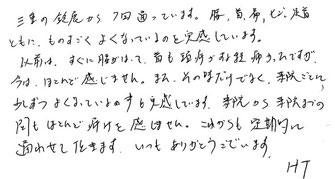 三重の鈴鹿から7回通っています。腰、首、肩、ヒザ、足首
ともに、ものすごくよくなっているのを実感しています。
以前は、すぐに腰がはって、首も頭痛がする程痛かったですが、
今は、ほとんど感じません。また、その時だけでなく、来院ごとに
少しずつよくなっているのも実感しています。来院から来院までの
間もほとんど痛けを感じません。これからも定期的に
通わせて頂きます。いつもありがとうございます。
HT